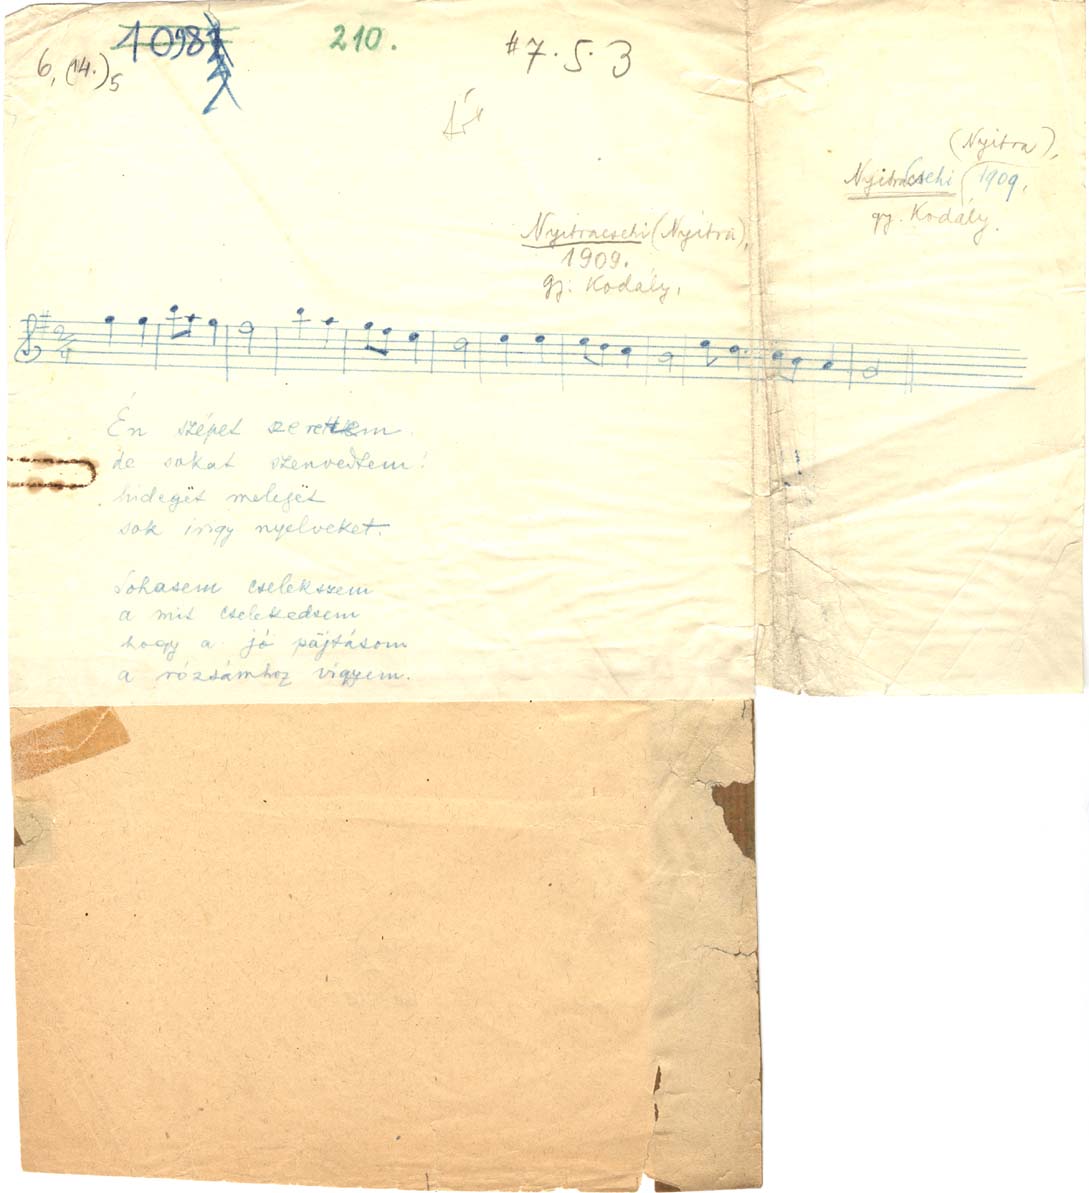 6, (14.)5
1098
210.
#7·5·3
(Nyitra),
Nyitracsehi 1909.
gy. Kodály.
Nyitracsehi (Nyitra),
1909.
gy: Kodály.
2/4
Én szépet szerettem
de sokat szenvedtem!
hidegët melegët
sok irigy nyelveket.
Sohasem cselekszem
a mit cselekedsem
hogy a jó pajtásom
a rózsámhoz vigyem.